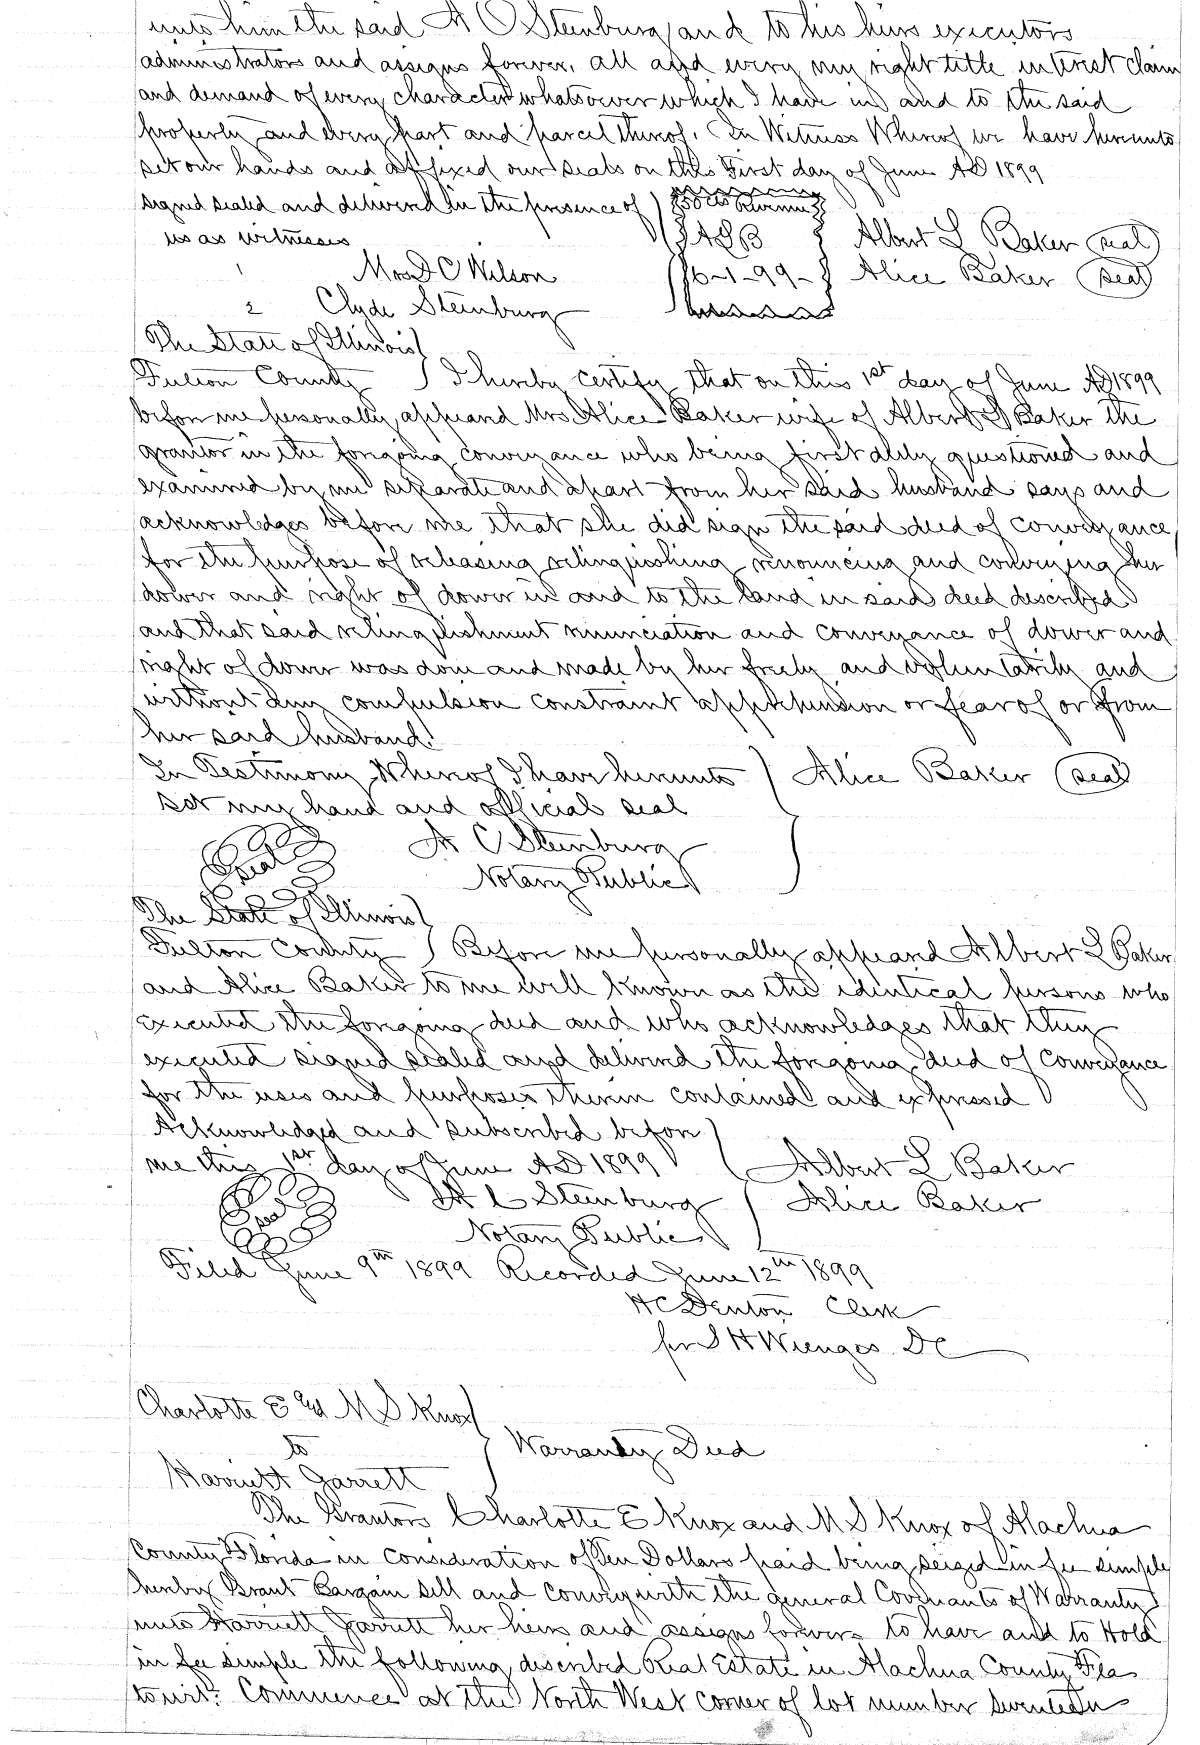 unto him the said H C Steinburg and to his heirs executors
administrators and assigns forever. all and every my right title interest claim
and demand of every character whatsoever which I have in and to the said
property and every part and parcel thereof. In Witness Whereof we have hereunto
set our hands and affixed our seals on this First day of June AD 1899
signed sealed and delivered in the presence of 50 cts Revenue
us as witnesses ALB Albert L Baker (seal)
1 Mrs D C Wilson 6-1-99- Alice Baker (seal)
2 Clyde Steinburg
The State of Illinois
Fulton County I hereby certify that on this 1st day of June AD 1899
before me personally appeard Mrs Alice Baker wife of Albert L Baker the
grantor in the forgoing conveyance who being first duly questioned and
examined by me separate and apart from her said husband says and
acknowledges before me that she did sign the said deed of conveyance
for the purpose of releasing relinquishing renouncing and conveying her
dower and right of dower in and to the land in said deed described
and that said relinquishment renunciation and conveyance of dower and
right of dower was done and made by her freely and voluntarily and
without any compulsion constraint apprehension or fear of or from
her said husband.
In Testimony Whereof I have hereunto Alice Baker (seal)
set my hand and official seal
Seal H C Steinburg
Notary Public
The State of Illinois
Fulton County Before me personally appeard Albert L Baker
and Alice Baker to me well known as the identical persons who
executed the forgoing deed and who acknowledges that they
executed signed sealed and delivered the forgoing deed of conveyance
for the uses and purposes therein contained and expressed
Acknowledged and subscribed before
me this 1st day of June AD 1899 Albert L Baker
Seal H C Steinburg Alice Baker
Notary Public
Filed June 9th 1899 Recorded June 12th 1899
H C Denton Clerk
per S H Wienges DC
Charlotte E and M S Knox
to Warranty Deed
Harriett Garrett
The Grantors Charlotte E Knox and M S Knox of Alachua
County Florida in consideration of Ten Dollars paid being seized in fee simple
hereby Grant Bargain sell and convey with the general Covenants of Warranty
unto Harriett Garrett her heirs and assigns forever to have and to Hold
in fee simple the following discribed Real Estate in Alachua County Fla
towit: Commence at the North West corner of lot number seventeen